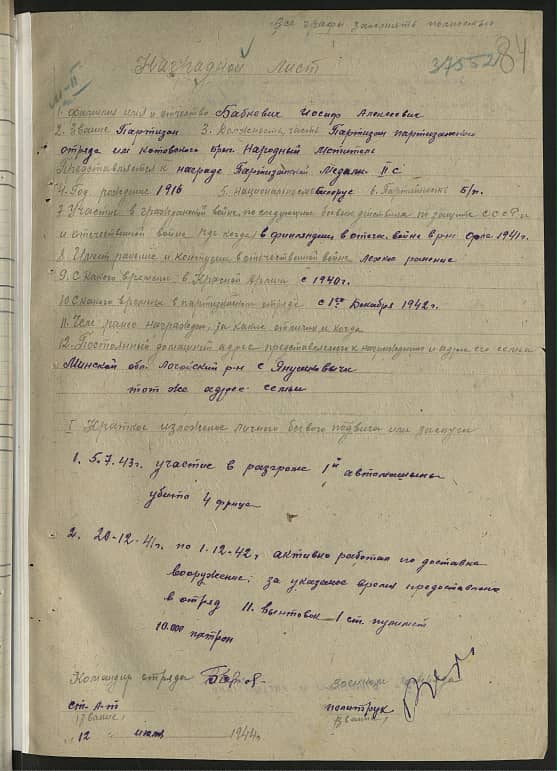 Все графы заполнять полностью
84
37552
Наградной лист
1. Фамилия имя и отчество Бабкович Иосиф Алексеевич
2. Звание Партизан 3. Должность, часть Партизан партизанского
отряда им Котовского бриг. Народный Мститель
Представляется к награде Партизанской Медали II с
4. Год рождения 1916 5. национальность Белорус 6. Партийность Б/п.
7. Участие в гражданской войне, последующие боевых действиях по защите СССР
и отечественной войне где когда) в финляндии в отечес. войне в р-н Орла 1941г.
8. Имеет ранение и контузии в отечественной войне Легкое ранение
9. С какого времени в Красной Армии с 1940г.
10. С какого времени в партизанском отряде с 1го Декабря 1942г.
11. Чем ранее награжден, за какие отличия и когда
12. Постоянный домашний адрес представляемого к награждению и адрес его семьи
Минской обл. Логойский р-н с Янушковичи
тот же адрес семьи
I Краткое изложение личного боевого подвига или заслуги
1. 5.7.43г. участие в разгроме 1й автомашины
убито 4 фрица
2. 20-12-41г. по 1-12-42г. активно работал по доставке
вооружение; за указаное время предоставлено
в отряд 11. винтовок 1 ст. пулимет
10.000 патрон
Командир отряда
Военком
ст. Л-т
политрук
(звание)
(звание)
12 июль 1944г.